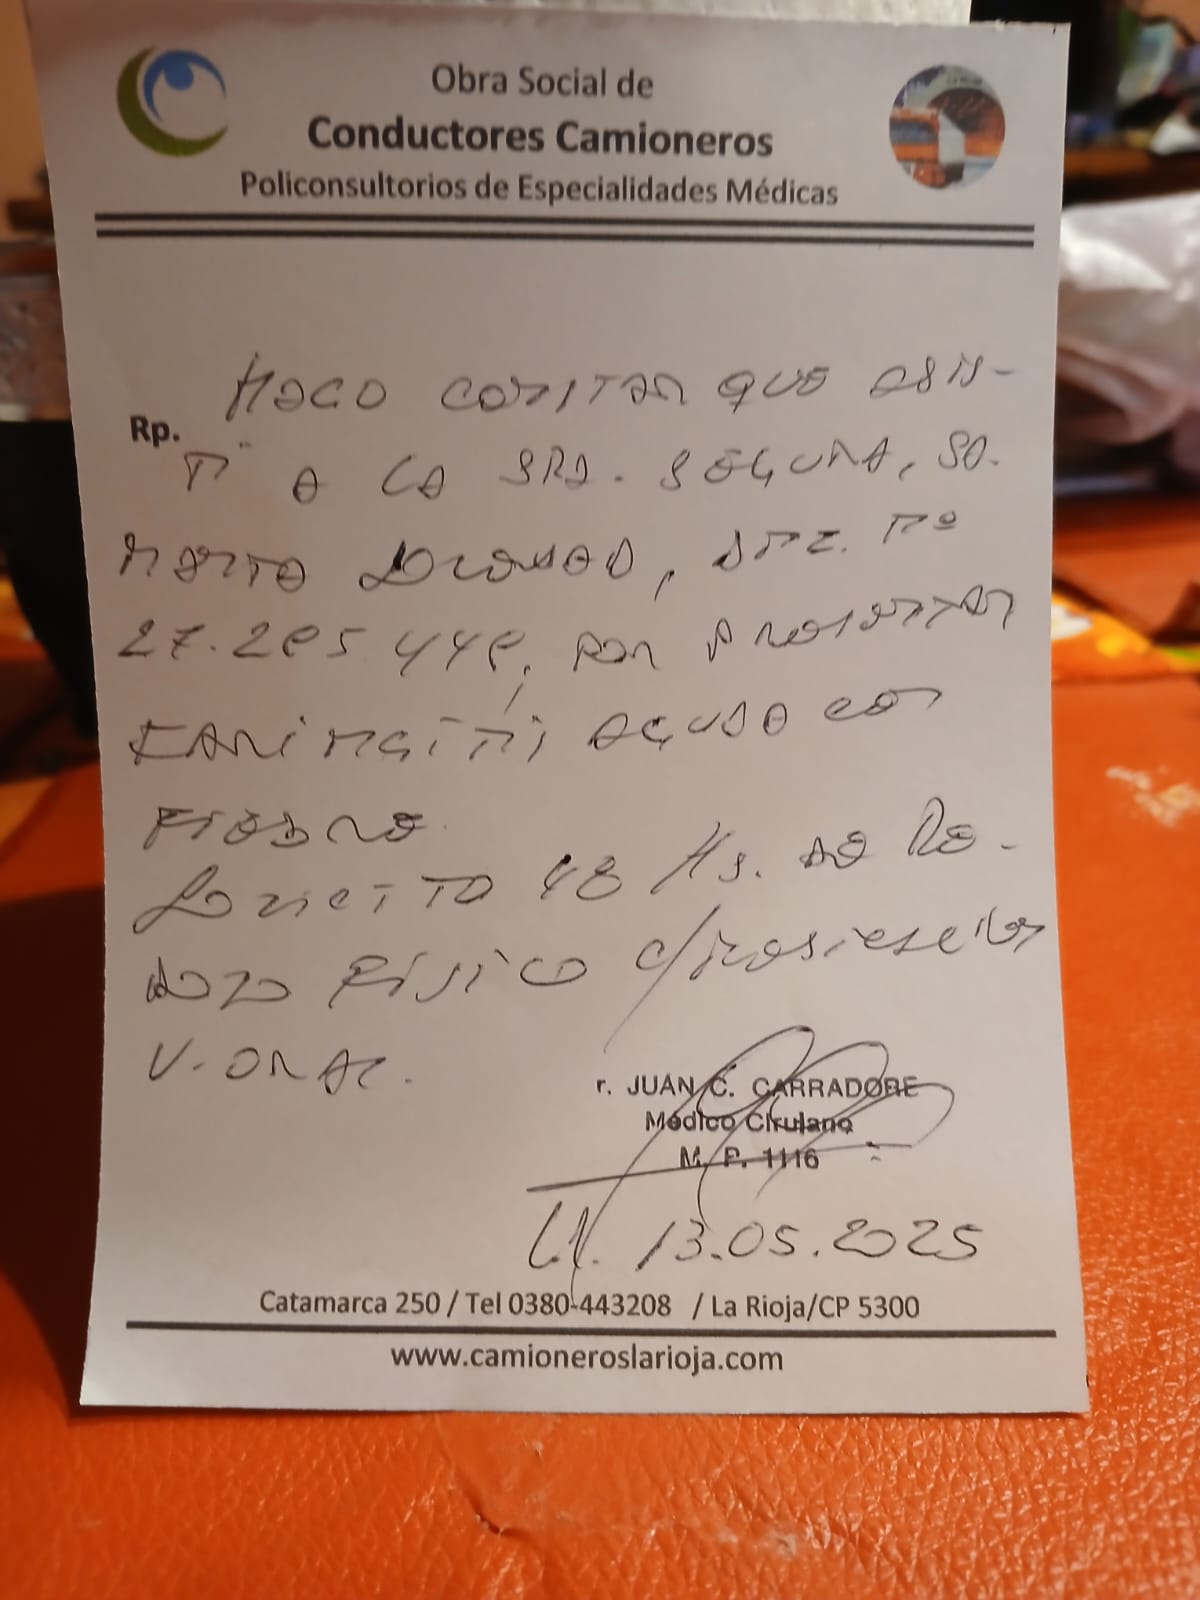 Obra Social de
Conductores Camioneros
Policonsultorios de Especialidades Médicas
HAGO CONSTAR QUE ASIS-
Rp.
A LA SRA. SEGURA,
27.285.449, POR PRESENTAR
FARINGITIS AGUDA CON
FIEBRE.
SOLICITO 48 Hs. DE RE-
POSO FÍSICO
V. ORAL.
r. JUAN C. CARRADORE
Médico Cirujano
M. P. 1116
L.R. 13.05.2025
Catamarca 250 / Tel 0380-443208 / La Rioja/CP 5300
www.camioneroslarioja.com